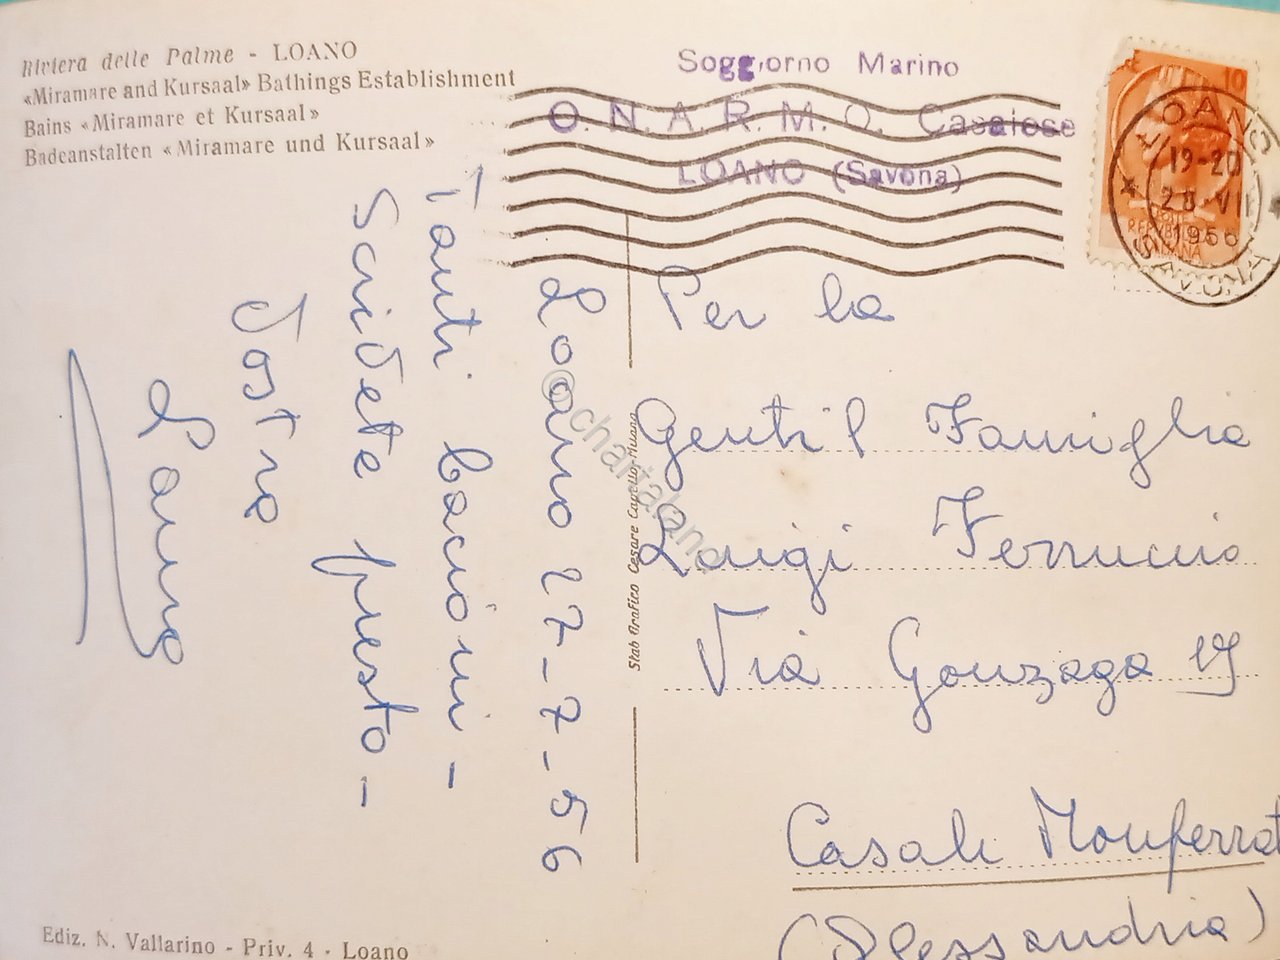 Riviera delle Palme - LOANO
«Miramare and Kursaal» Bathings Establishment
Bains «Miramare et Kursaal»
Badeanstalten «Miramare und Kursaal»
Soggiorno Marino
O. N. A. R. M. O. Casalese
LOANO (Savona)
10
LOANO
19-20
28.VII
1956
SAVONA
Loano 27-7-56
Tanti bacioni -
Scrivete presto -
Vostro
Per la
Gentil Famiglia
Luigi Ferruccio
Via Gonzaga 19
Casale Monferrat
(Alessandria)
Stab Grafico Cesare Capello-Milano
© chartaland
Ediz. N. Vallarino - Priv. 4 - Loano